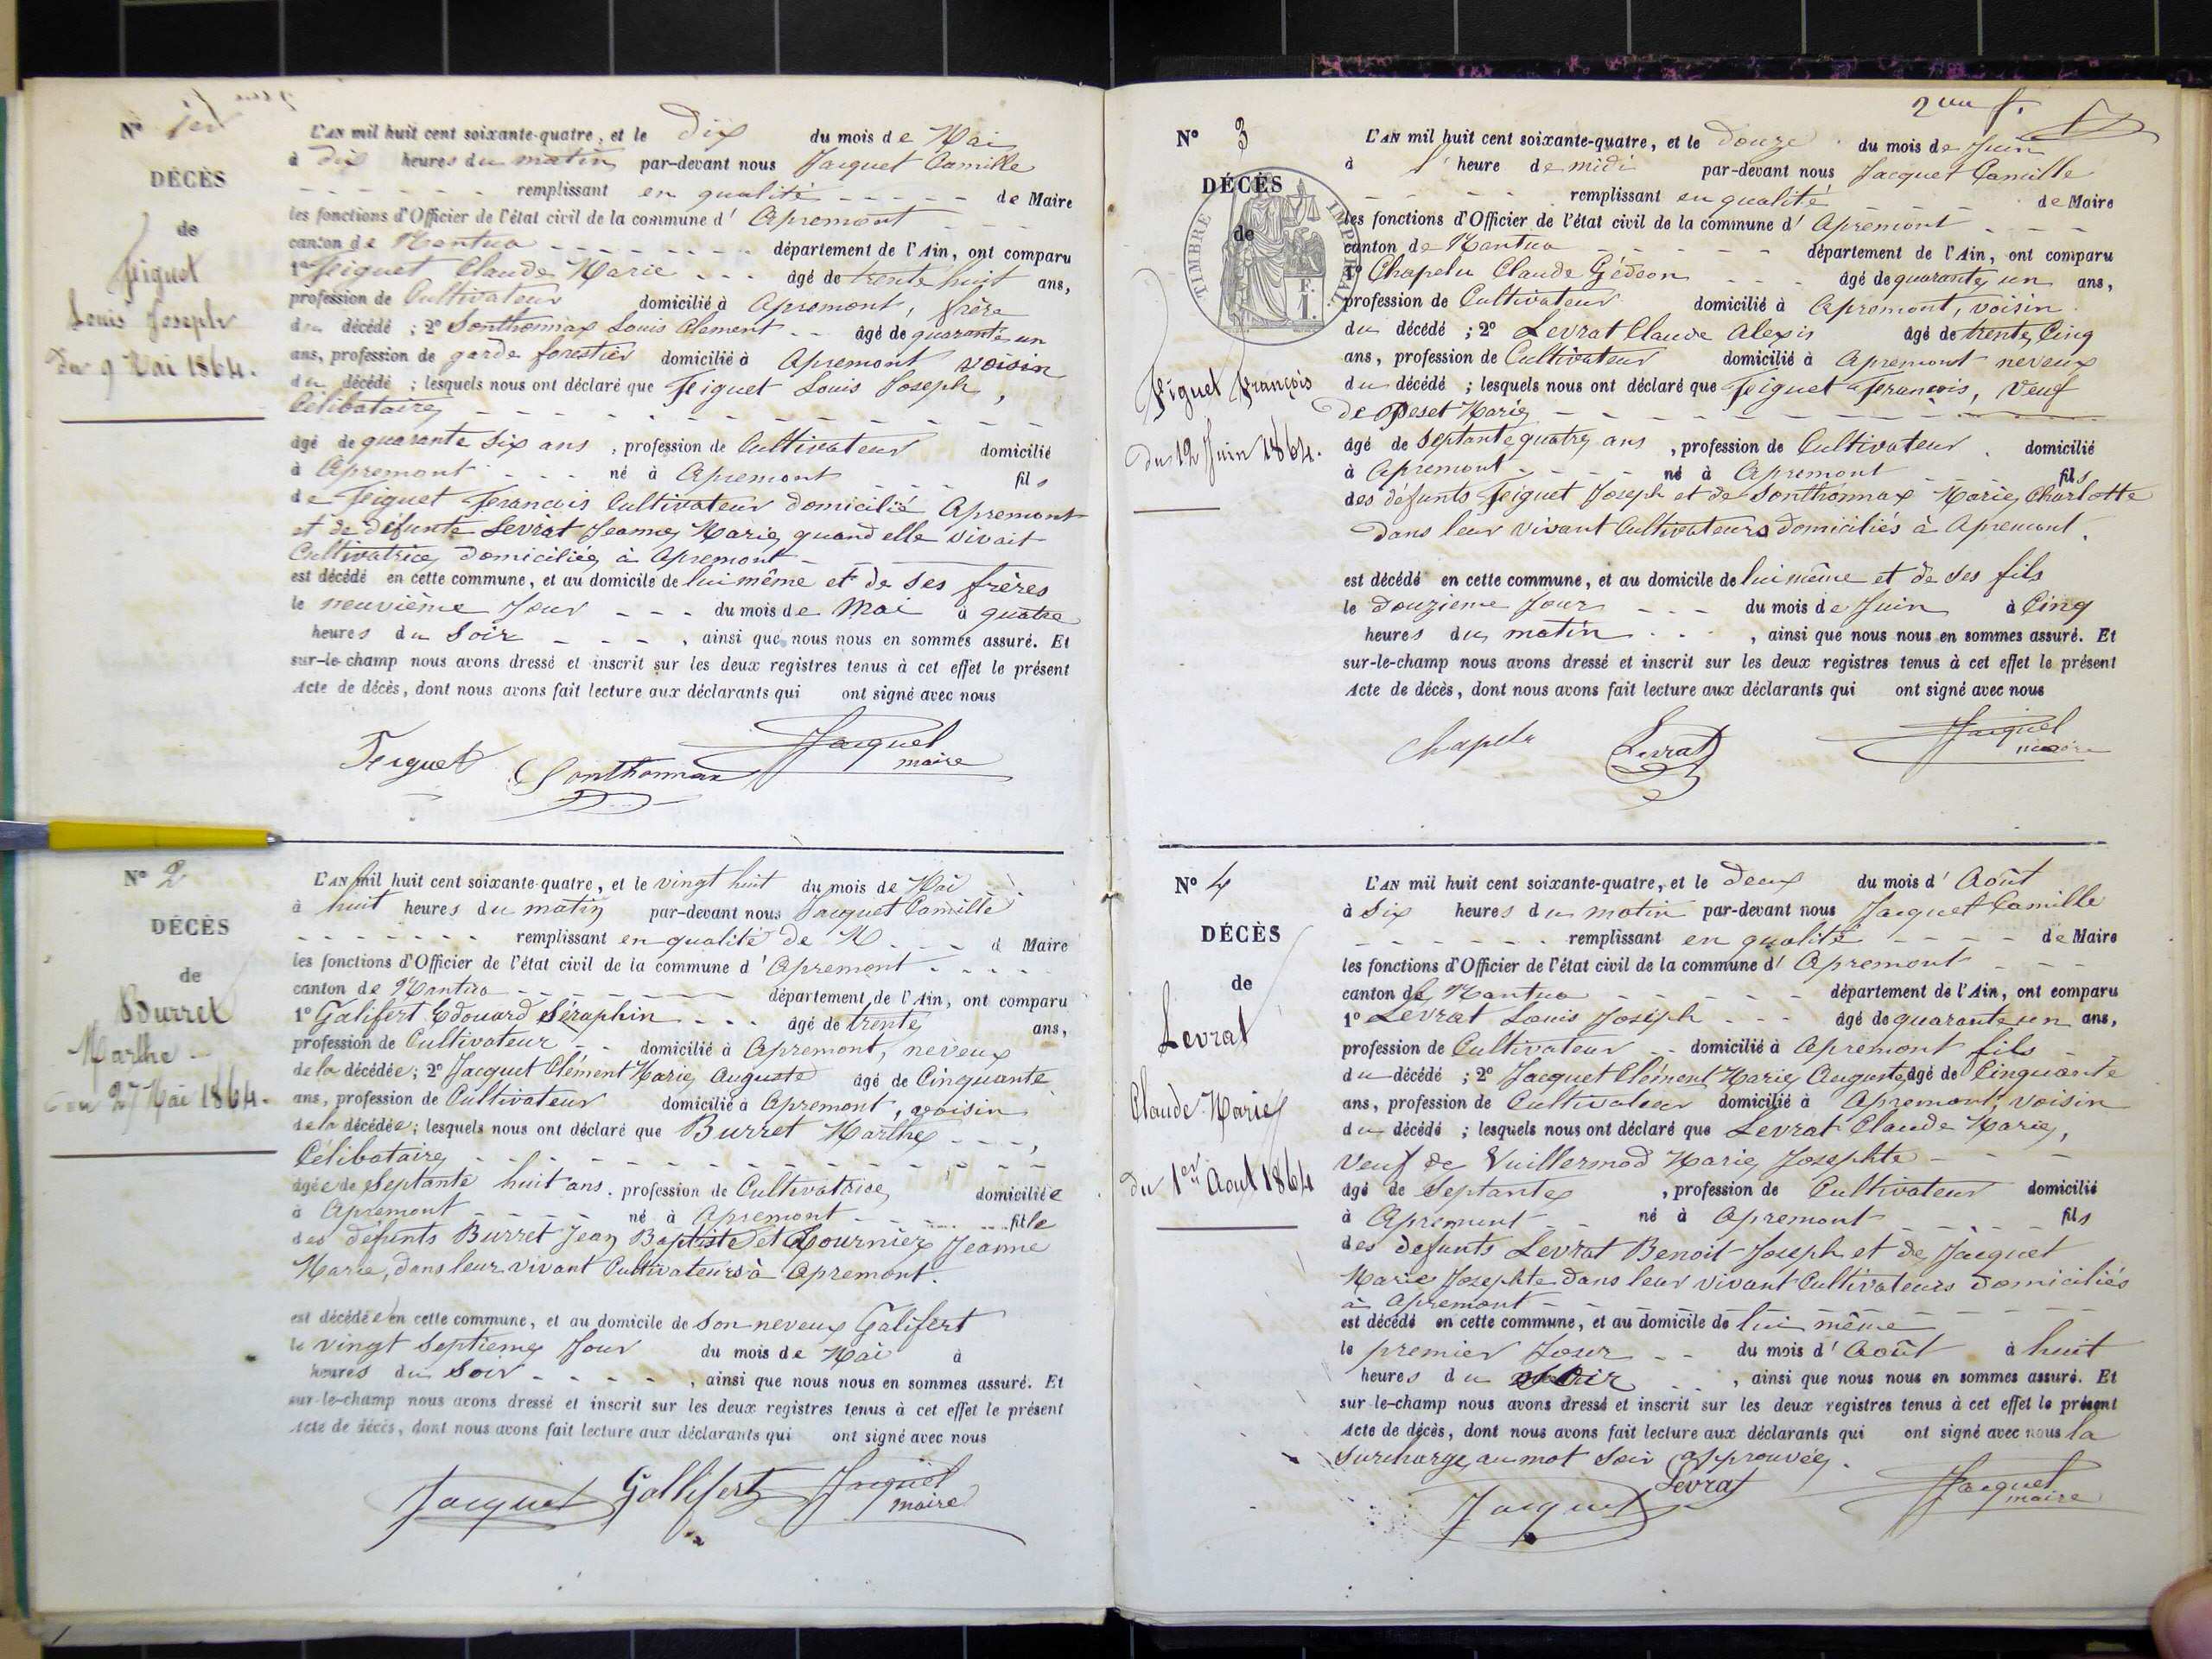 N° 1er
DÉCÈS
de
Figuet
Louis Joseph
du 9 Mai 1864.
L'AN mil huit cent soixante-quatre, et le Dix du mois de Mai
à dix heures du matin par-devant nous Jacquet Camille
remplissant en qualité de Maire
les fonctions d'Officier de l'état civil de la commune d' Apremont
canton de Nantua département de l'Ain, ont comparu
1° Figuet Claude Marie âgé de trente huit ans,
profession de Cultivateur domicilié à Apremont, frère
du décédé ; 2° Sonthonnax Louis Clement âgé de quarante un
ans, profession de garde forestier domicilié à Apremont voisin
du décédé ; lesquels nous ont déclaré que Figuet Louis Joseph,
Célibataire
âgé de quarante Six ans, profession de Cultivateur domicilié
à Apremont né à Apremont fils
de Figuet Francois Cultivateur domicilié Apremont
et de défunte Levrat Jeanne Marie quand elle vivait
Cultivatrice domiciliée à Apremont
est décédé en cette commune, et au domicile de lui même et de ses frères
le neuvième Jour du mois de Mai à quatre
heures du Soir, ainsi que nous nous en sommes assuré. Et
sur-le-champ nous avons dressé et inscrit sur les deux registres tenus à cet effet le présent
Acte de décès, dont nous avons fait lecture aux déclarants qui ont signé avec nous
Figuet Sonthonnax Jacquet
maire
N° 2
DÉCÈS
de
Burret
Marthe
du 27 Mai 1864.
L'AN mil huit cent soixante-quatre, et le vingt huit du mois de Mai
à huit heures du matin par-devant nous Jacquet Camille
remplissant en qualité de M d Maire
les fonctions d'Officier de l'état civil de la commune d' Apremont
canton de Nantua département de l'Ain, ont comparu
1° Galifert Edouard Séraphin âgé de trente ans,
profession de Cultivateur domicilié à Apremont, neveux
de la décédée ; 2° Jacquet Clément Marie Auguste âgé de Cinquante
ans, profession de Cultivateur domicilié à Apremont, voisin
de la décédée ; lesquels nous ont déclaré que Burret Marthe,
Célibataire
âgée de Septante huit ans, profession de Cultivatrice domiciliée
à Apremont né à Apremont fille
des défunts Burret Jean Baptiste et Tournier Jeanne
Marie, dans leur vivant Cultivateurs à Apremont.
est décédée en cette commune, et au domicile de son neveux Galifert
le vingt Septieme Jour du mois de Mai à
heures du Soir, ainsi que nous nous en sommes assuré. Et
sur-le-champ nous avons dressé et inscrit sur les deux registres tenus à cet effet le présent
Acte de décès, dont nous avons fait lecture aux déclarants qui ont signé avec nous
Jacquet Gallifert Jacquet
maire
N° 3
DÉCÈS
de
TIMBRE IMPÉRIAL
1 F.
Figuet François
du 12 Juin 1864.
L'AN mil huit cent soixante-quatre, et le douze du mois de Juin
à 1 heure de midi par-devant nous Jacquet Camille
remplissant en qualité de Maire
les fonctions d'Officier de l'état civil de la commune d' Apremont
canton de Nantua département de l'Ain, ont comparu
1° Chapelu Claude Gédeon âgé de quarante un ans,
profession de Cultivateur domicilié à Apremont, voisin
du décédé ; 2° Levrat Claude Alexis âgé de trente Cinq
ans, profession de Cultivateur domicilié à Apremont neveux
du décédé ; lesquels nous ont déclaré que Figuet Francois, Veuf
de Peset Marie
âgé de Septante quatre ans, profession de Cultivateur domicilié
à Apremont né à Apremont fils
des défunts Figuet Joseph et de Sonthonnax Marie Charlotte
dans leur vivant Cultivateurs domiciliés à Apremont.
est décédé en cette commune, et au domicile de lui même et de ses fils
le douzieme Jour du mois de Juin à Cinq
heures du matin, ainsi que nous nous en sommes assuré. Et
sur-le-champ nous avons dressé et inscrit sur les deux registres tenus à cet effet le présent
Acte de décès, dont nous avons fait lecture aux déclarants qui ont signé avec nous
Chapelu Levrat Jacquet
maire
N° 4
DÉCÈS
de
Levrat
Claude Marie
du 1er Aout 1864
L'AN mil huit cent soixante-quatre, et le deux du mois d' Août
à Six heures du matin par-devant nous Jacquet Camille
remplissant en qualité de Maire
les fonctions d'Officier de l'état civil de la commune d' Apremont
canton de Nantua département de l'Ain, ont comparu
1° Levrat Louis Joseph âgé de quarante un ans,
profession de Cultivateur domicilié à Apremont fils
du décédé ; 2° Jacquet Clément Marie Auguste âgé de Cinquante
ans, profession de Cultivateur domicilié à Apremont, voisin
du décédé ; lesquels nous ont déclaré que Levrat Claude Marie,
Veuf de Vuillermod Marie Josephte
âgé de Septante, profession de Cultivateur domicilié
à Apremont né à Apremont fils
des defunts Levrat Benoit Joseph et de Jacquet
Marie Josephte dans leur vivant Cultivateurs domiciliés
à Apremont
est décédé en cette commune, et au domicile de lui même
le premier Jour du mois d' Août à huit
heures du soir, ainsi que nous nous en sommes assuré. Et
sur-le-champ nous avons dressé et inscrit sur les deux registres tenus à cet effet le présent
Acte de décès, dont nous avons fait lecture aux déclarants qui ont signé avec nous la
Surcharge au mot Soir approuvée.
Jacquet Levrat Jacquet
maire